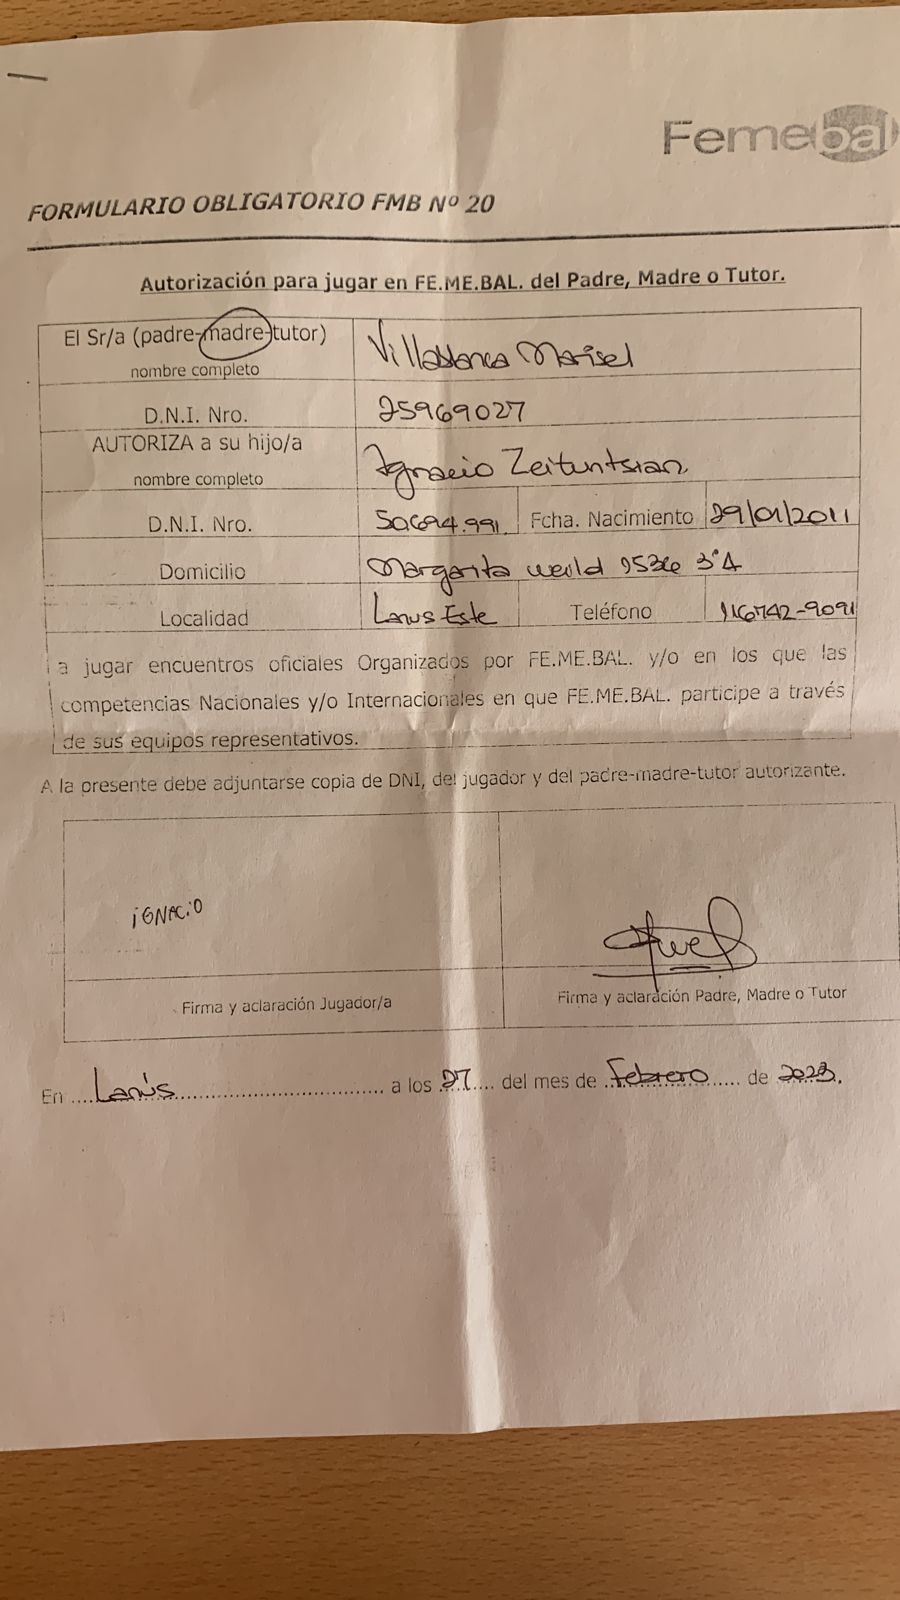 Femebal
FORMULARIO OBLIGATORIO FMB Nº 20
Autorización para jugar en FE.ME.BAL. del Padre, Madre o Tutor.
El Sr/a (padre-madre-tutor) nombre completo Villablanca Marisel
D.N.I. Nro. 25969027
AUTORIZA a su hijo/a nombre completo Ignacio Zeituntsian
D.N.I. Nro. 50.694.991. Fcha. Nacimiento 29/01/2011
Domicilio Margarita 3°A
Localidad Lanus Este Teléfono 116742-9091
a jugar encuentros oficiales Organizados por FE.ME.BAL. y/o en los que las
competencias Nacionales y/o Internacionales en que FE.ME.BAL. participe a través
de sus equipos representativos.
A la presente debe adjuntarse copia de DNI, del jugador y del padre-madre-tutor autorizante.
iGNACiO
Firma y aclaración Jugador/a Firma y aclaración Padre, Madre o Tutor
En ....Lanús.................................... a los 27.... del mes de .Febrero...... de 2023.